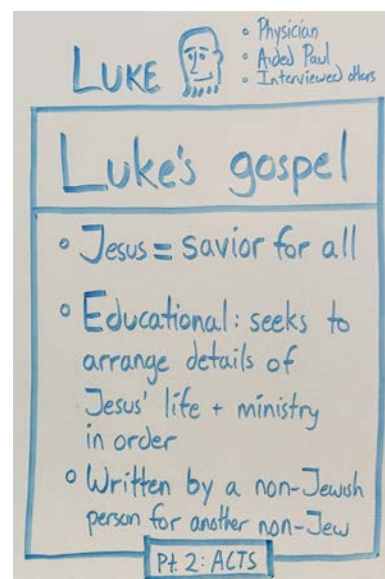 LUKE
• Physician
• Aided Paul
• Interviewed others
Luke's gospel
• Jesus = savior for all
• Educational: seeks to
arrange details of
Jesus' life + ministry
in order
• Written by a non-Jewish
person for another non-Jew
Pt. 2: ACTS